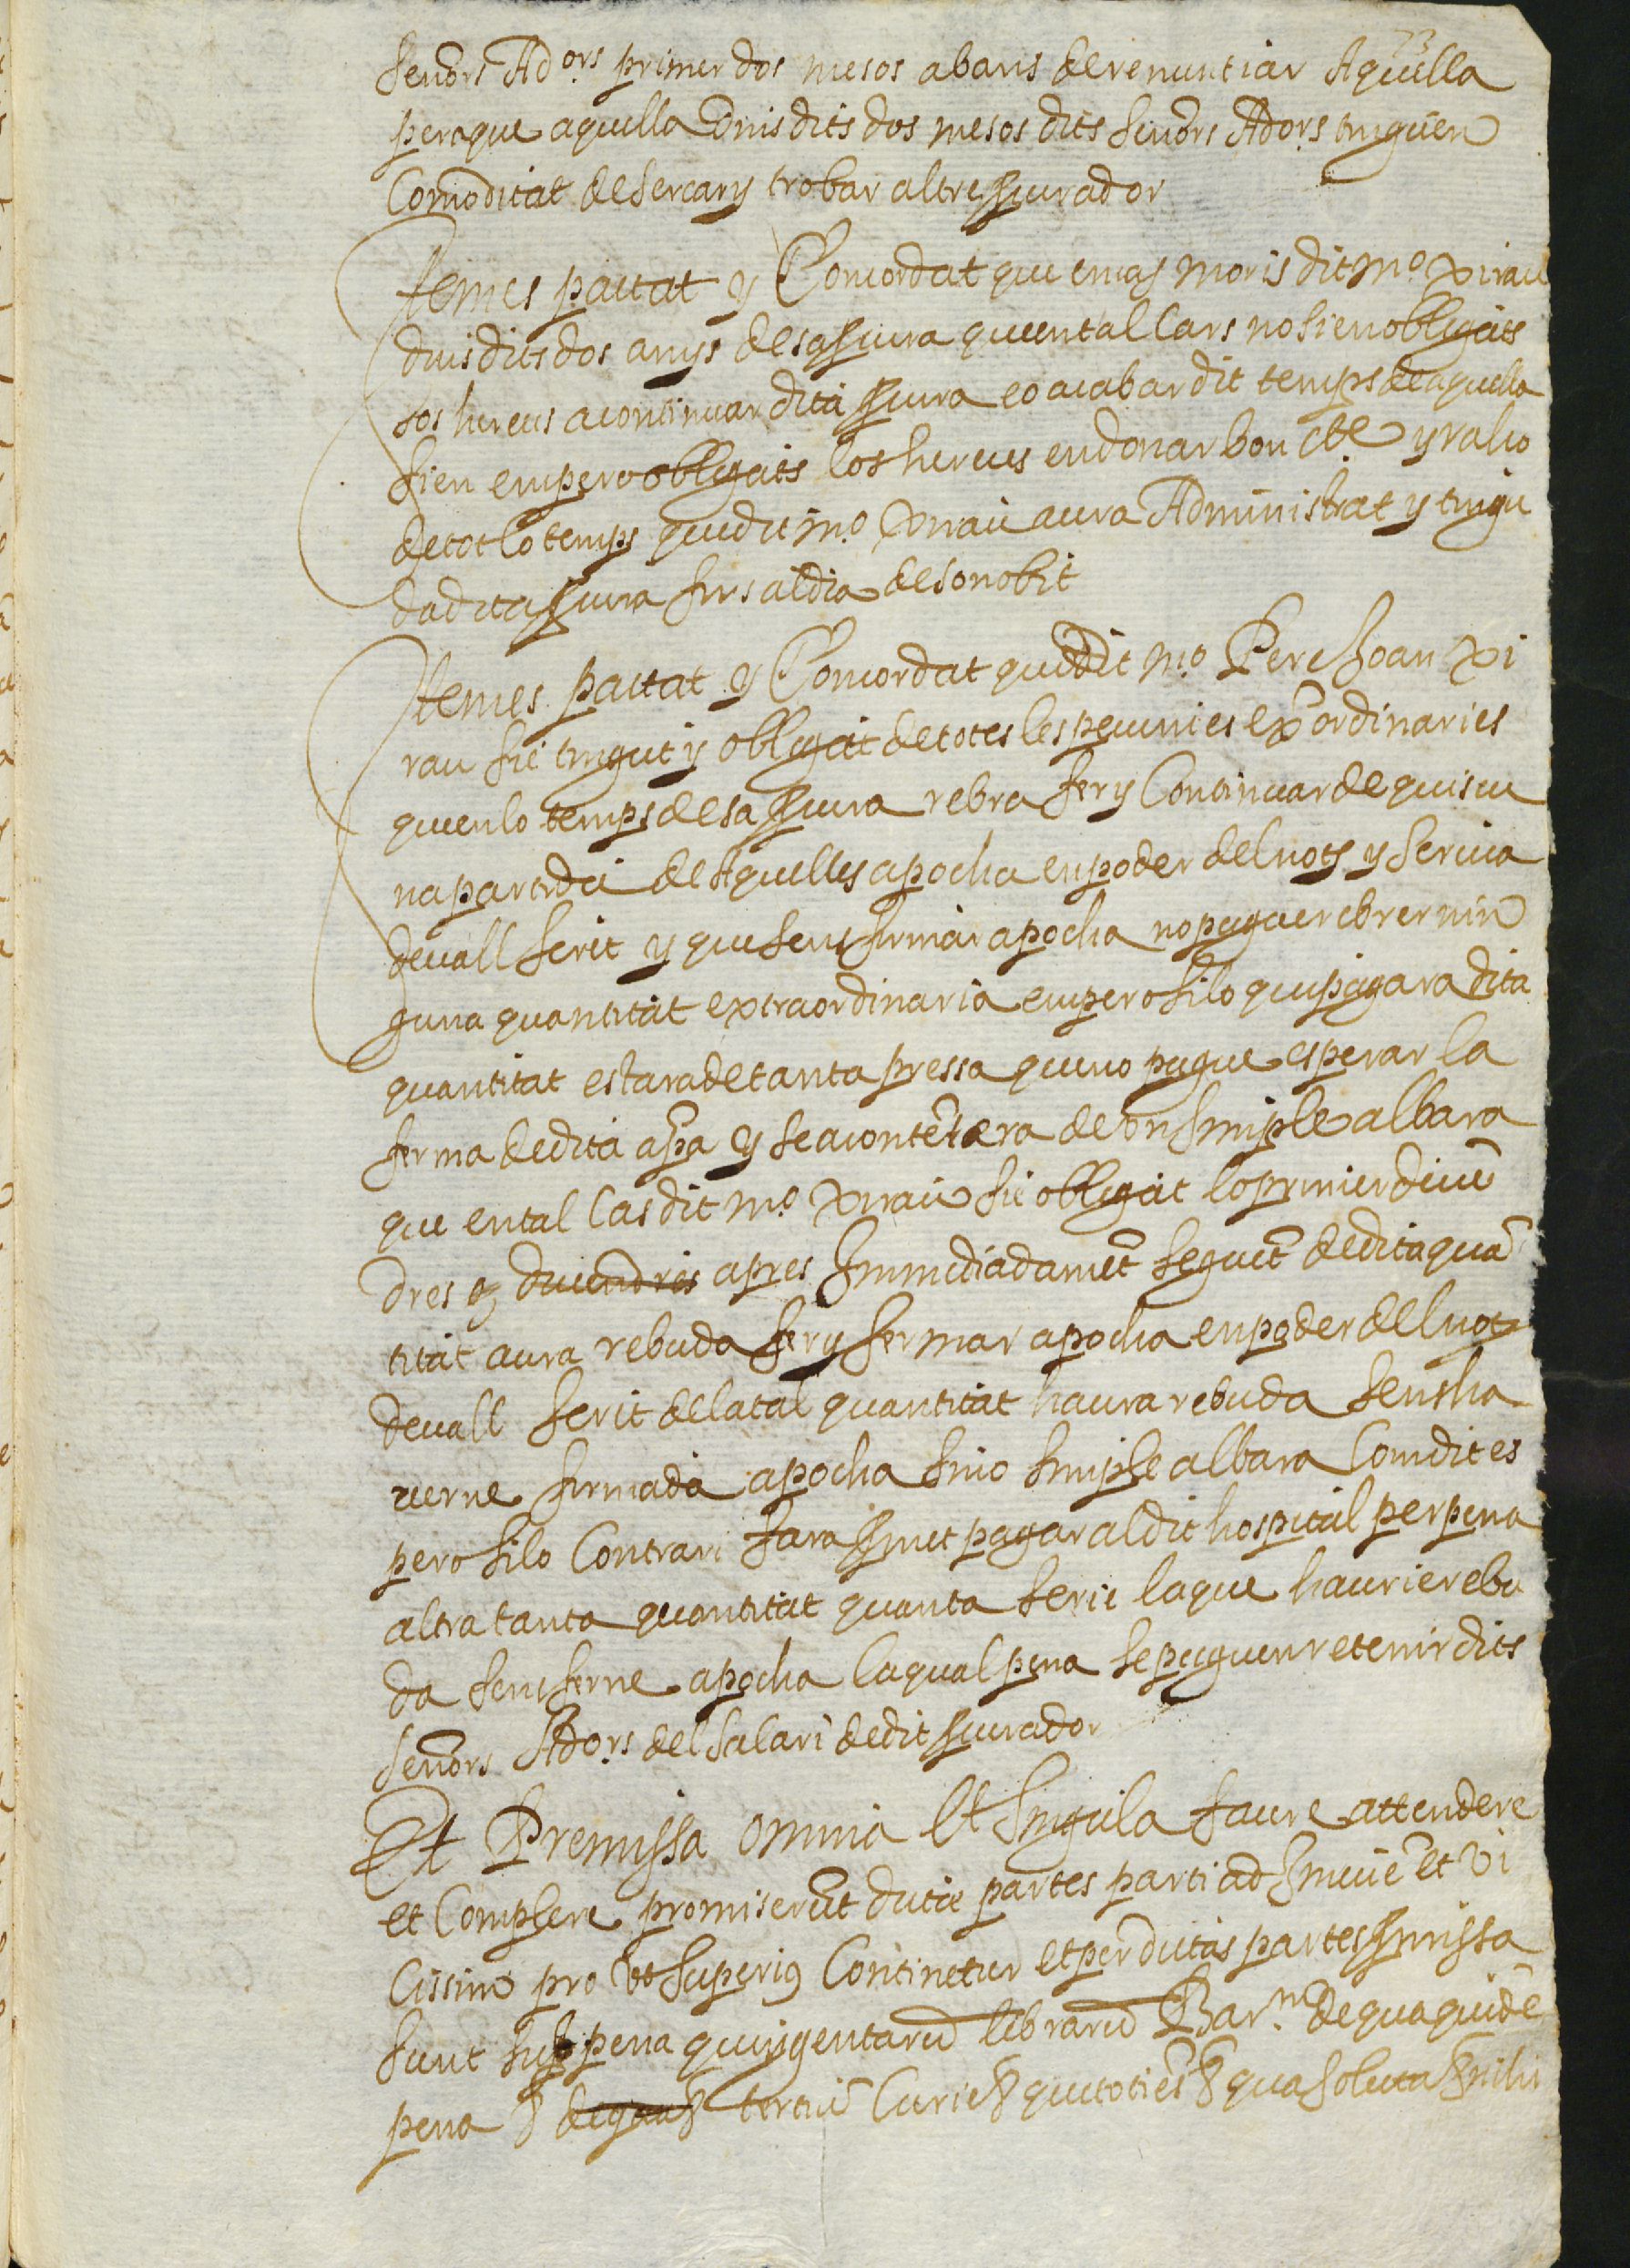 73
señors Adors primer dos mesos abans de renuntiar Aquella
peraque aquella dins dits dos mesos dits señors Adors tinguen
comoditat de sercar y trobar altre procurador
Item es pactat y Concordat que en cas moris dit mo. Xirau
dins dits dos anys de sa procura que en tal cars no sien obligats
sos hereus a continuar dita procura eo acabar dit temps de aquella
sien empero obligats los hereus en donar bon cte y raho
de tot lo temps que dit mo. Xirau aura Administrat y tingu
da dita procura fins al dia de son obit
Item es pactat y Concordat que dit mo. Pere Joan Xi
rau sie tingut y obligat de totes les pecunies exordinaries
que en lo temps de sa procura rebra fer y Continuar de quiscu
na partida de Aquelles apocha en poder del nots y scriva
devall scrit y que sens firmar apocha no puga rebrer nin
guna quantitat extraordinaria empero si lo qui pagara dita
quantitat estara de tanta pressa que no pugue esperar la
ferma de dita apa y se acontẽtara de un simple albara
que en tal cas dit mo. Xirau sie obligat lo primer divẽ
dres o divendres apres Immediadamẽt seguẽt de dita quã
titat aura rebuda fer y fermar apocha en poder del not
devall scrit de la tal quantitat haura rebuda sens ha
verne firmada apocha sino simple albara com dit es
pero si lo contrari fara promet pagar al dit hospital per pena
altra tanta quantitat quanta serie la que haurie rebu
da sens ferne apocha la qual pena se puguen retenir dits
señors Adors del salari de dit procurador
Et Premissa omnia et singula facere attendere
et complere promiserũt dicte partes parti ad Invicẽ et vi
cissim pro ut superiꝯ continetur et per dictas partes promissa
sunt sub pena quingentarũ librarũ Barn. de qua quidẽ
pena tertiũ Curie quotiẽs qua soluta nihi